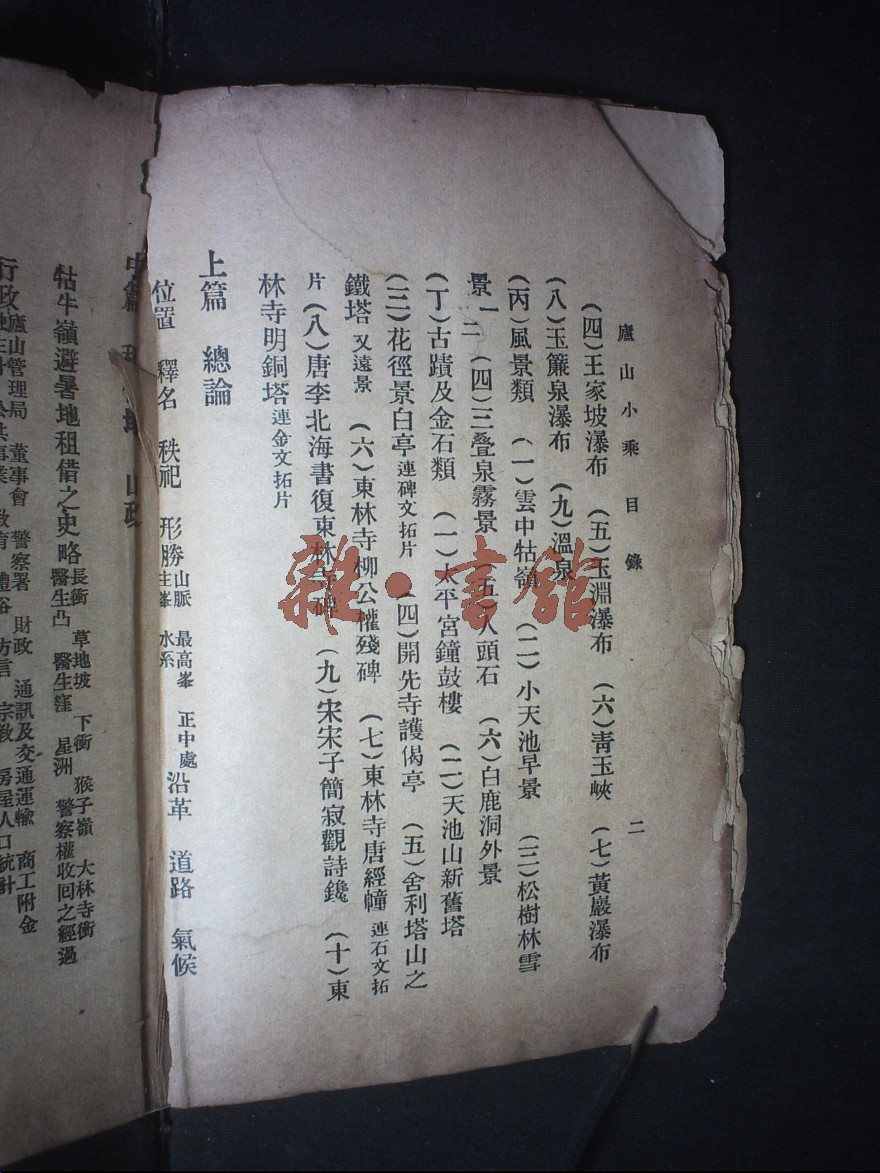 廬山小乘 目錄 二
（四）王家坡瀑布 （五）玉淵瀑布 （六）靑玉峽 （七）黃巖瀑布
（八）玉簾泉瀑布 （九）溫泉
（丙）風景類 （一）雲中牯嶺 （二）小天池早景 （三）松樹林雪
景一 二 （四）三叠泉霧景 （五）人頭石 （六）白鹿洞外景
（丁）古蹟及金石類 （一）太平宮鐘鼓樓 （二）天池山新舊塔
（三）花徑景白亭連碑文拓片 （四）開先寺護偈亭 （五）舍利塔山之
鐵塔又遠景 （六）東林寺柳公權殘碑 （七）東林寺唐經幢連石文拓
片 （八）唐李北海書復東林寺碑 （九）宋宋子簡寂觀詩鑱 （十）東
林寺明銅塔連金文拓片
上篇 總論
位置 釋名 秩祀 形勝山脈 最高峯 正中處 主峯 水系 沿革 道路 氣候
中篇 山政
牯牛嶺避暑地租借之史略長衝 草地坡 下衝 猴子嶺 大林寺衝 醫生凹 醫生窪 星洲 警察權收回之經過
行政廬山管理局 董事會 警察署 財政 通訊及交通運輸 商工附金 公共事業 教育 禮俗 方言 宗敎 房屋人口統計
雜·書館